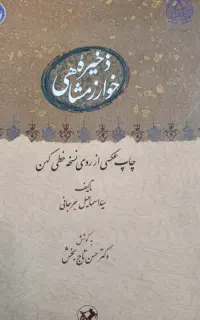 ذخیره‌ی
خوارزمشاهی
چاپ عکسی از روی نسخه خطی کهن
تألیف
سید اسماعیل جرجانی
به کوشش
دکتر حسن تاج بخش